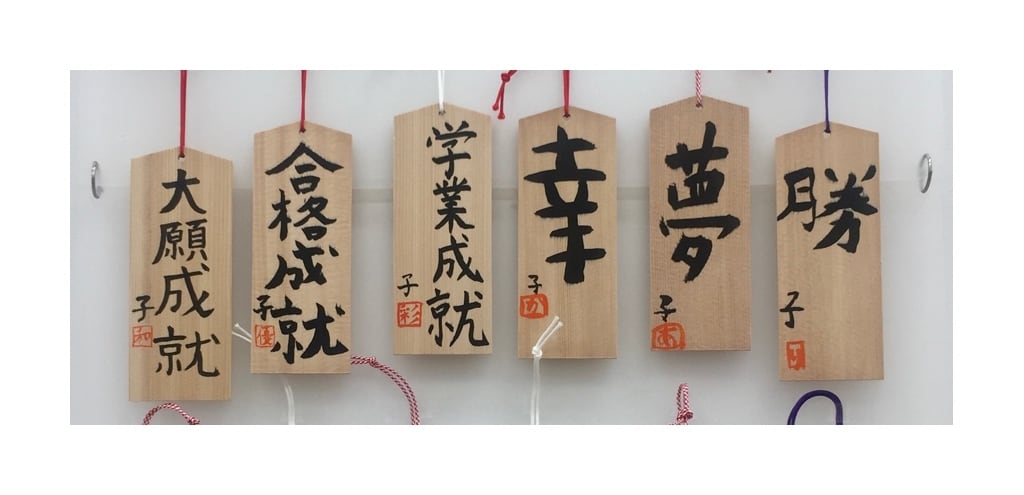 大願成就
子
和
合格成就
子
優
学業成就
子
彩
幸
子
夢
子
勝
子